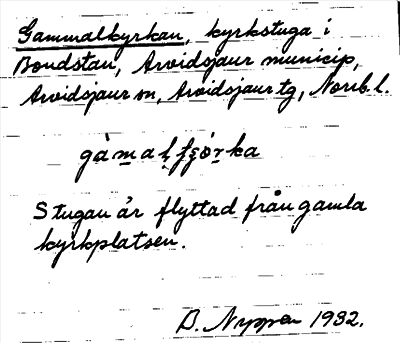 Gammalkyrkan, kyrkstuga i
Bondstan, Arvidsjaur municip,
Arvidsjaur sn, Arvidsjaur tg, Norrb. l.
Stugan är flyttad från gamla
kyrkplatsen.
B. 1932.